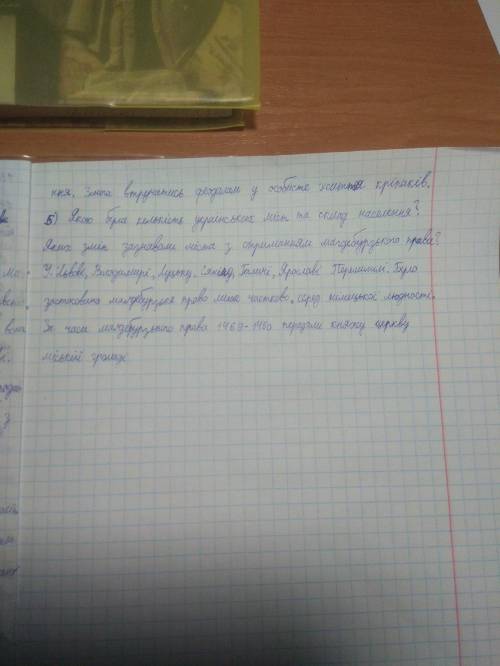 ння. Змога втручатись феодалам у особисте життя кріпаків.
5) Якою була кількість українських міст та склад населення?
Яких змін зазнавали міста з отриманням магдебурзького права?
У Львові, Володимирі, Луцьку, Сяноці, Галичі, Ярославі Перемишлі. Було
застосовано магдебурзьке право лише частково, серед німецької людності.
За часи магдебурзького права 1469-1480 передали княжу церкву
міській громаді